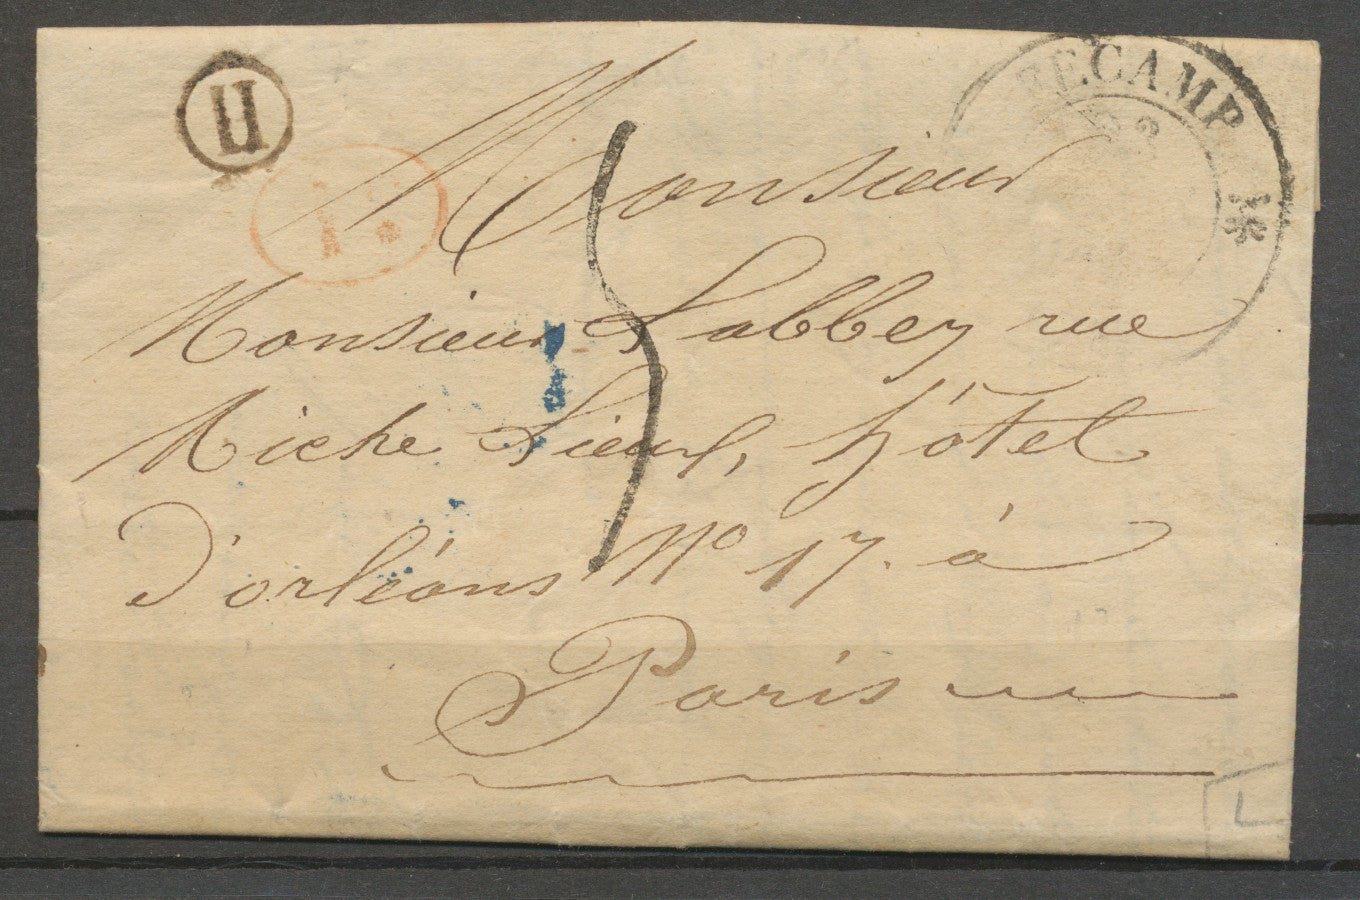 FECAMP
Monsieur
Monsieur Labbey rue
Richelieu, hôtel
d'orléans No 17. à
Paris
L